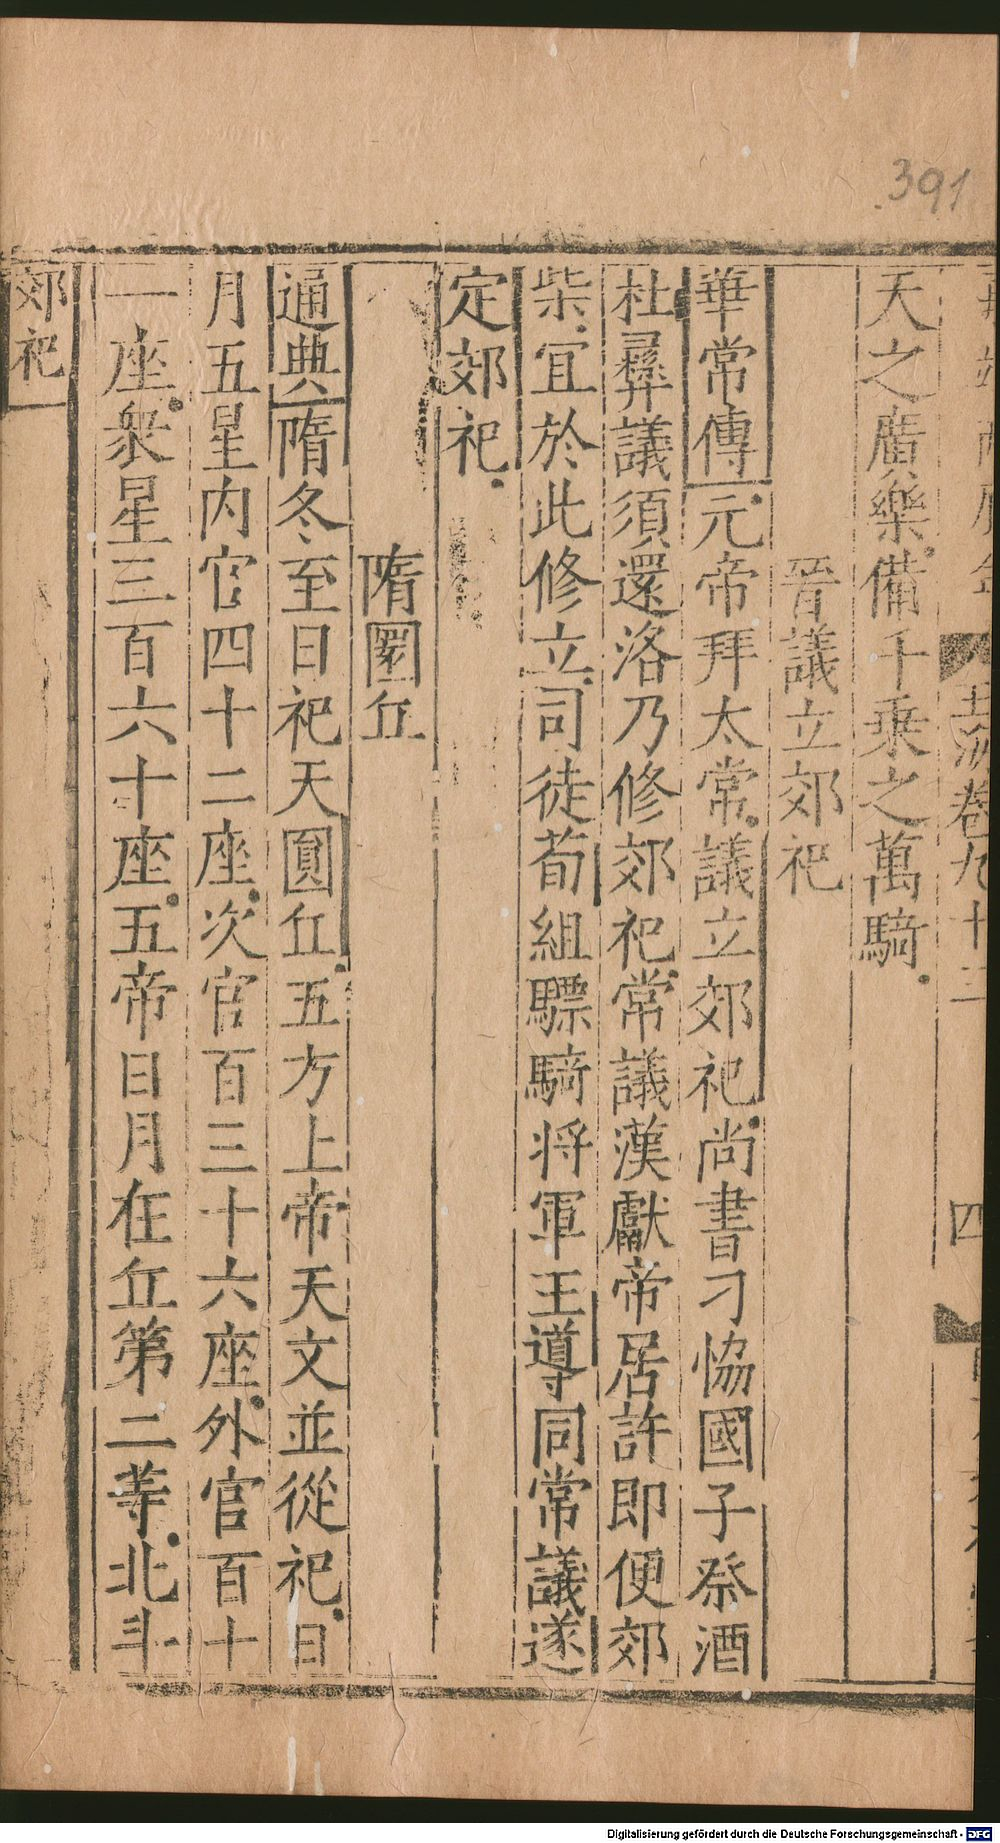 391
五洲卷九十三 四
天之廣樂備千乘之萬騎
晉議立郊祀
華常傳元帝拜太常議立郊祀尚書刁恊國子祭酒
杜彞議須還洛乃修郊祀常議漢獻帝居許即便郊
柴宜於此修立司徒荀組驃騎將軍王導同常議遂
定郊祀
隋圜丘
通典隋冬至日祀天圓丘五方上帝天文並從祀日
月五星內官四十二座次官百三十六座外官百十
一座衆星三百六十座五帝日月在丘第二等北斗
郊祀
Digitalisierung gefördert durch die Deutsche Forschungsgemeinschaft - DFG